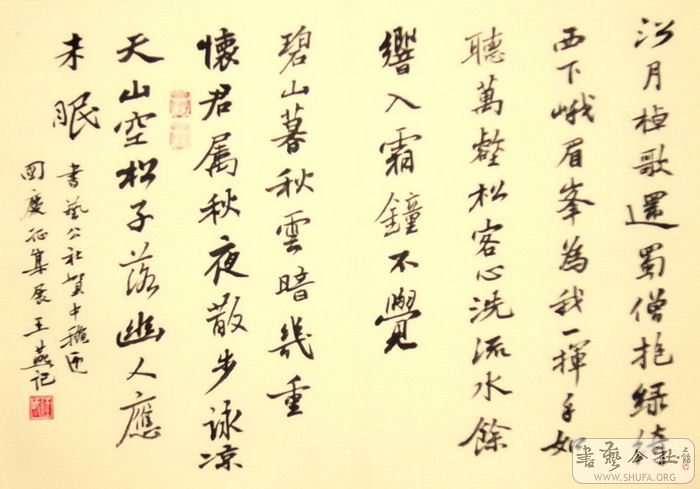 沿月棹歌還蜀僧抱綠綺
西下峨眉峯為我一揮手如
聽萬壑松客心洗流水餘
響入霜鐘不覺
碧山暮秋雲暗幾重
懷君属秋夜散步詠凉
天山空松子落幽人應
未眠
書藝公社賀中穐迎
國慶征集展王燕記
書藝公社
WWW.SHUFA.ORG